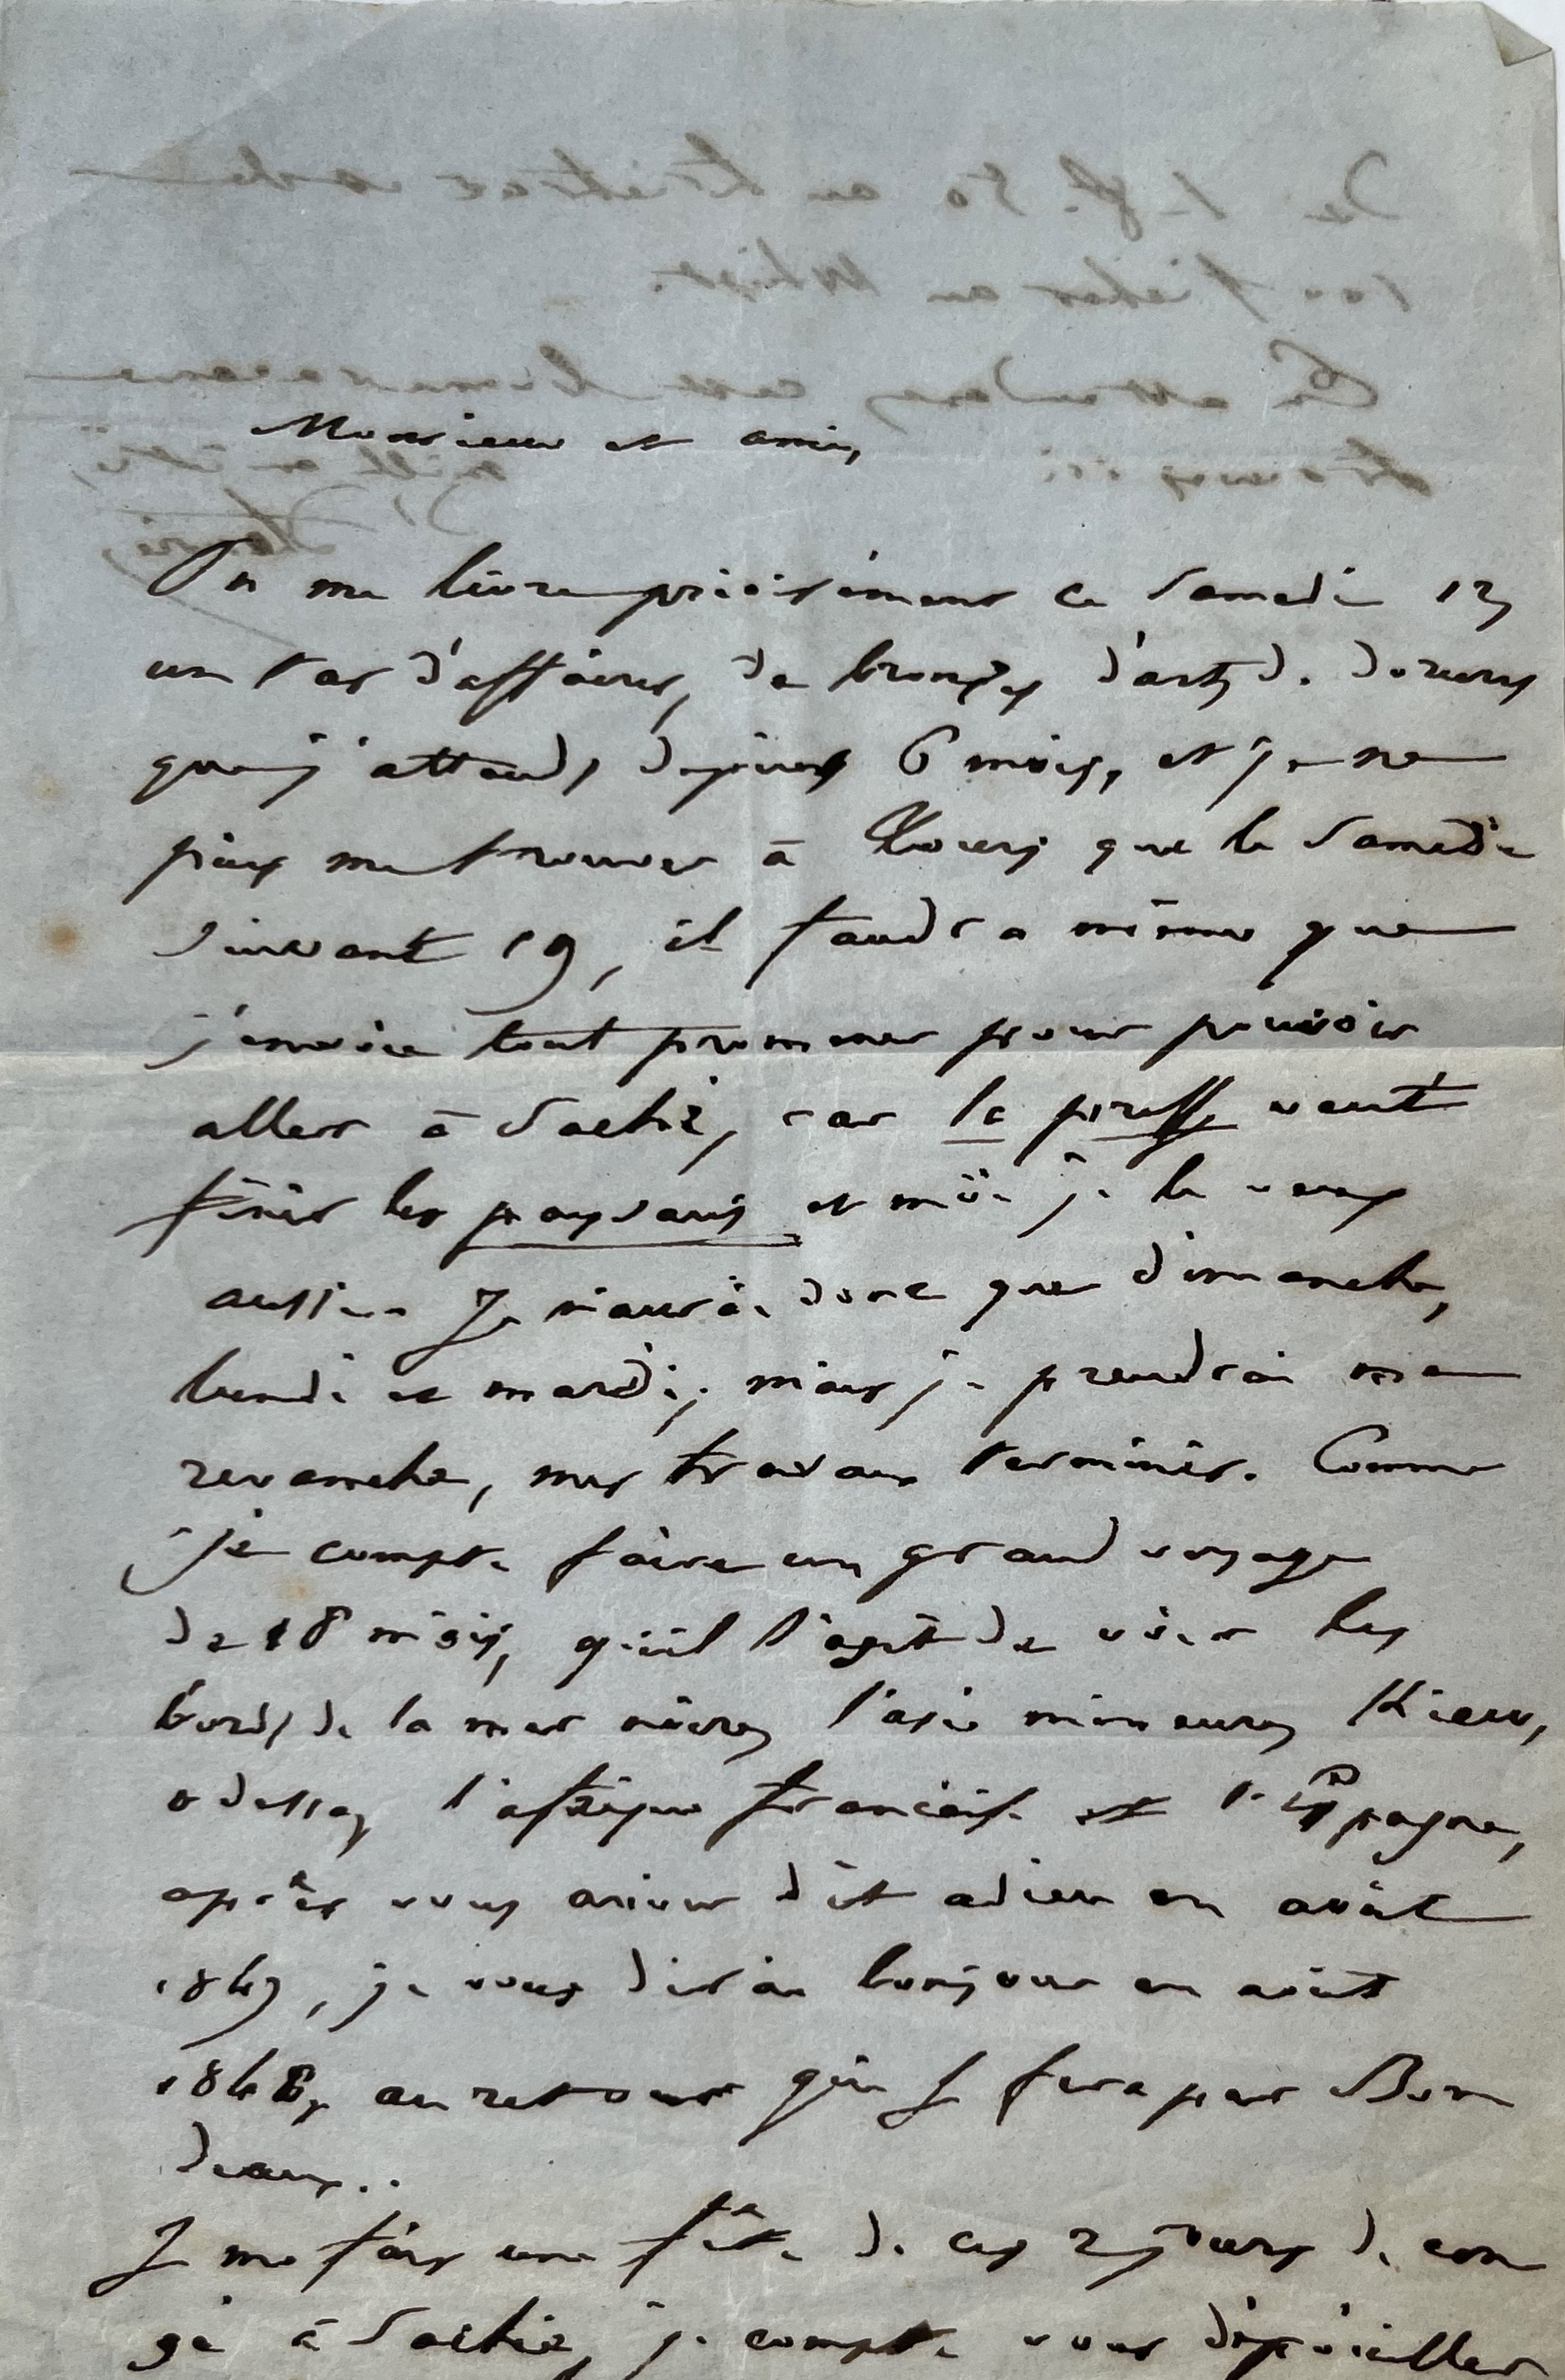 Monsieur et ami,
On me livre précisément ce Samedi 12,
un tas d'affaires, de bronzes d'art, de dorures
que j'attends depuis 6 mois, et je ne
puis me trouver à Tours que le Samedi
suivant 19, il faudra même que
j'envoie tout promener pour pouvoir
aller à Saché, car la presse veut
finir les paysans et moi je le veux
aussi. Je n'aurai donc que dimanche,
lundi et mardi; mais je prendrai ma
revanche, mes travaux terminés. Comme
je compte faire un grand voyage
de 18 mois, qu'il s'agit de voir les
bords de la mer noire, l'asie mineure, Kiew,
odessa, l'afrique française et l'Espagne,
après vous avoir dit adieu en août
1847, je vous dirai bonjour en août
1848, au retour qui se fera par Bor
deaux..
Je me fais une fête de ces 2 jours de con
gé à Saché, je compte vous dépouiller
de 1 fr. 50 au trictrac
100 fiches au Whist.